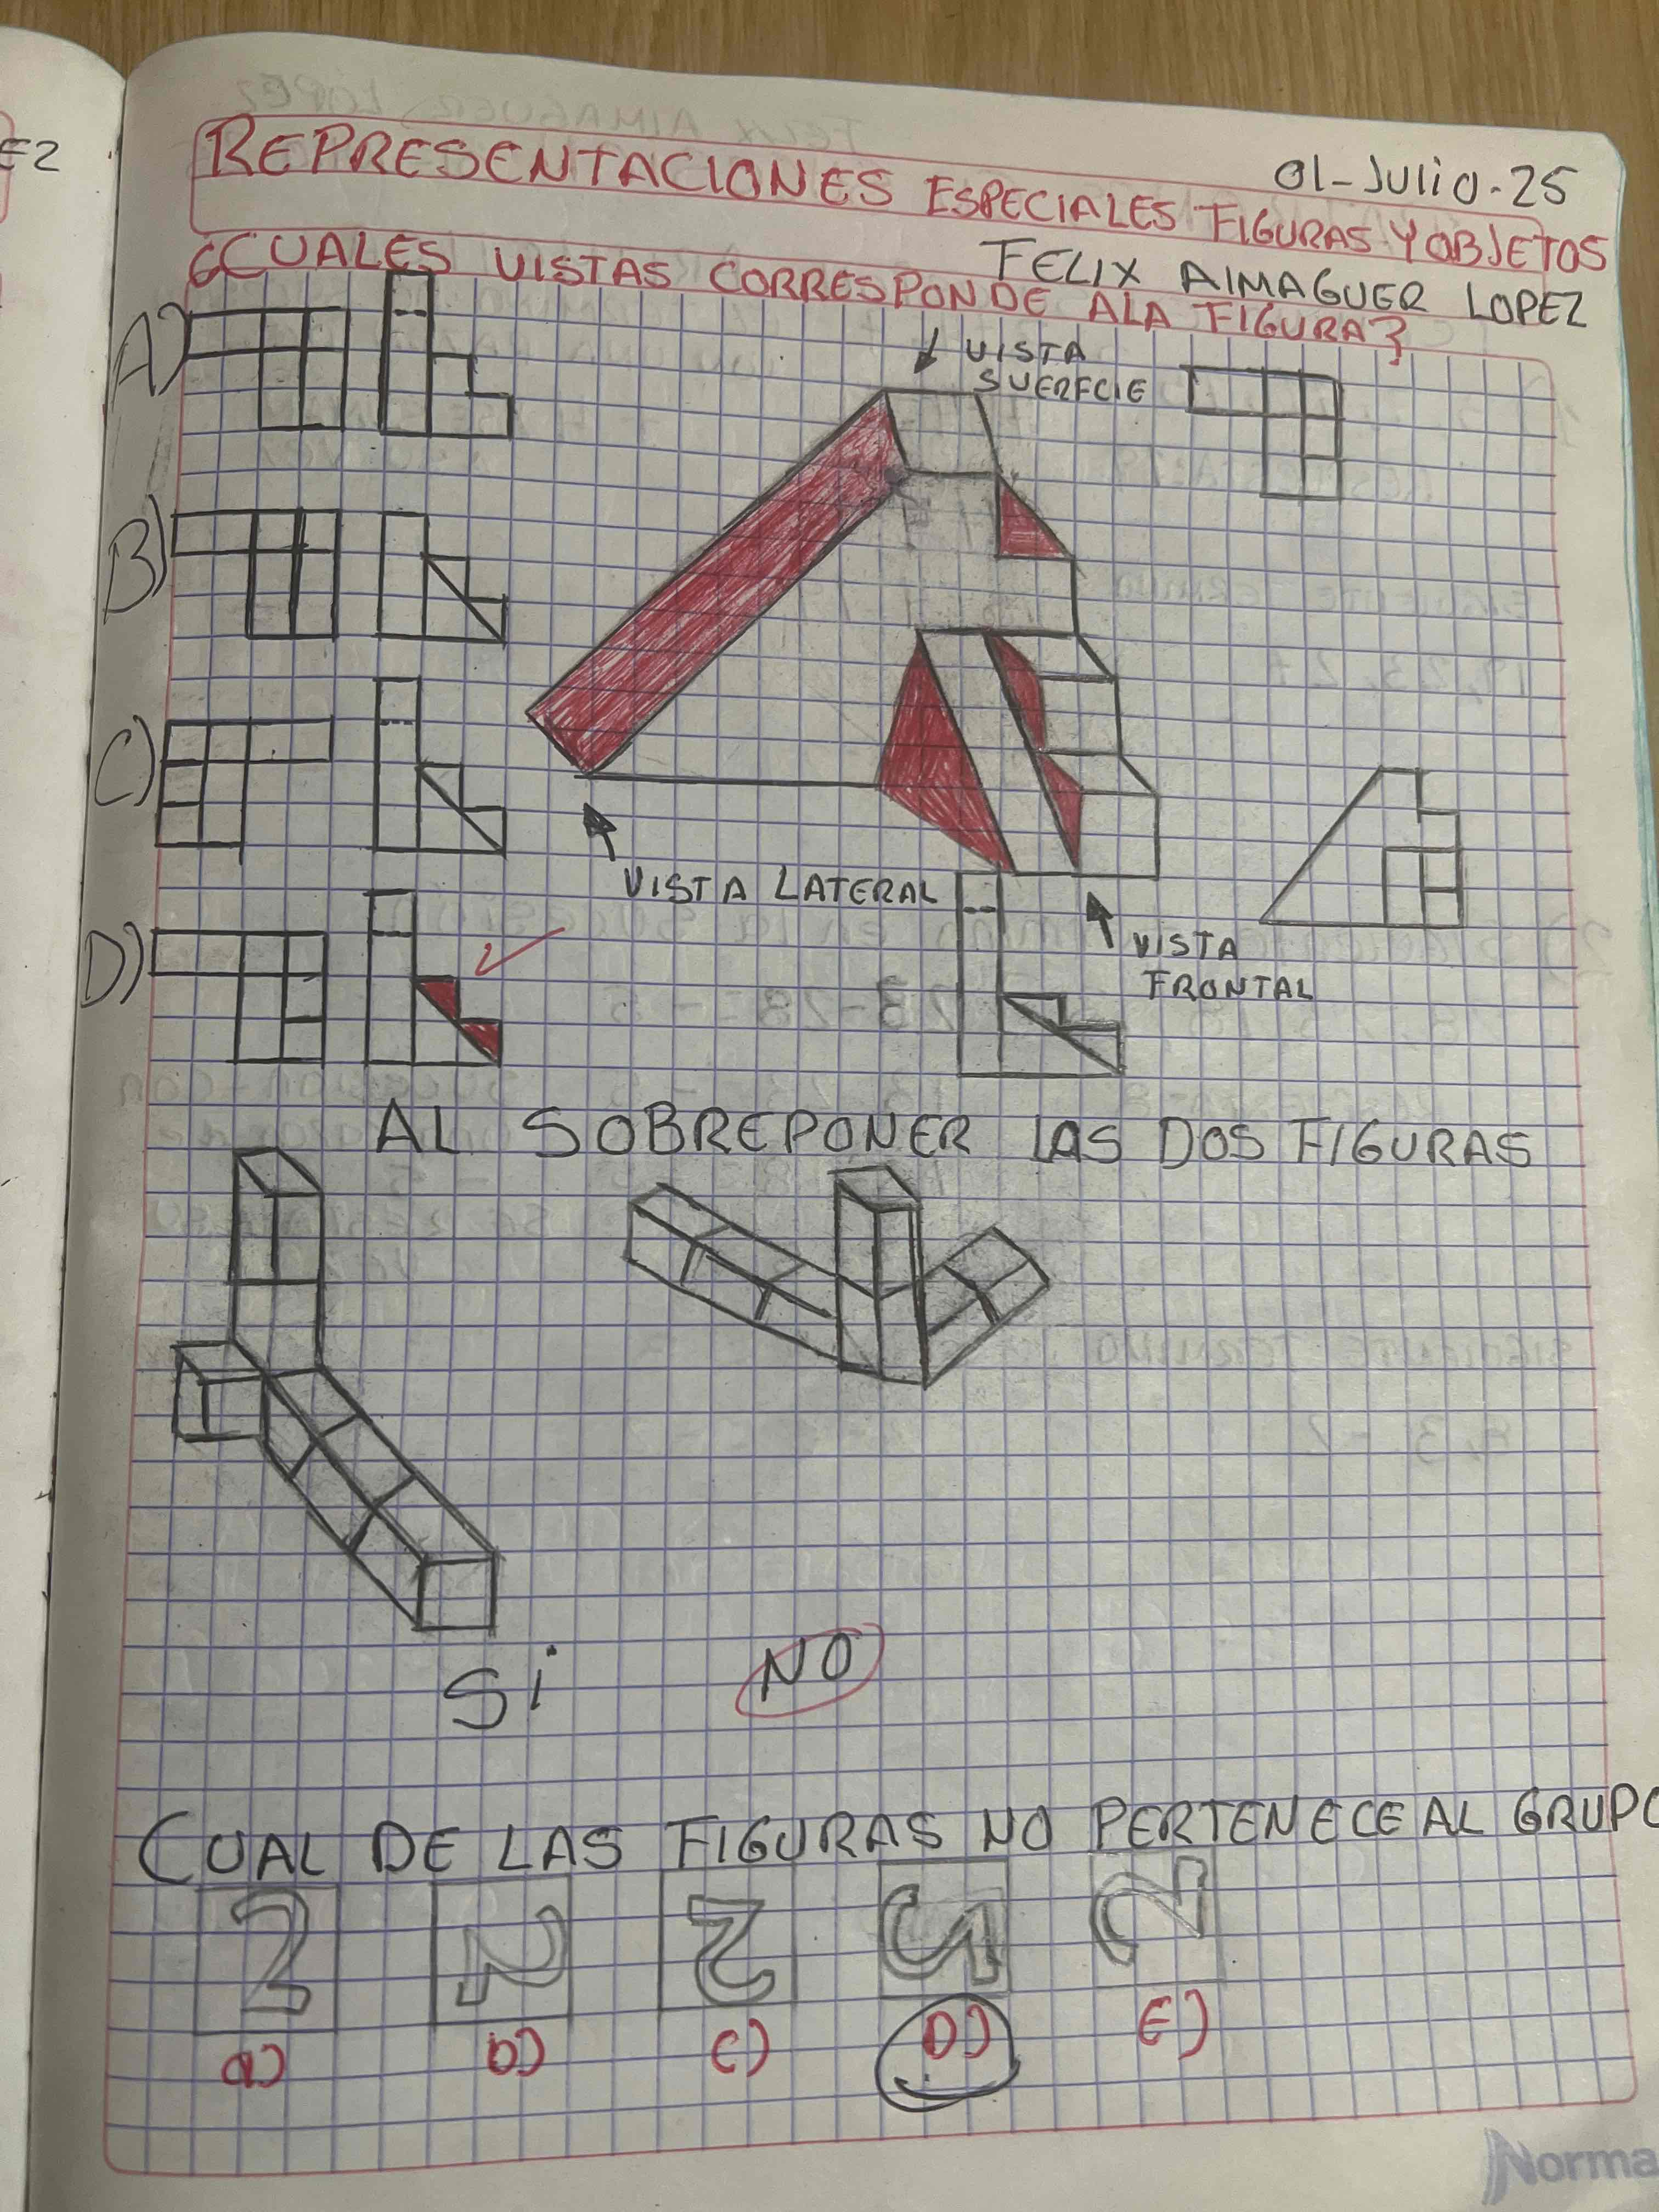 EZ
REPRESENTACIONES ESPECIALES FIGURAS Y OBJETOS
01-Julio-25
FELIX AIMAGUER LOPEZ
¿CUALES VISTAS CORRESPONDE ALA FIGURA?
A)
VISTA
SUERFCIE
B)
C)
VISTA LATERAL
VISTA
FRONTAL
D)
AL SOBREPONER LAS DOS FIGURAS
Si
NO
CUAL DE LAS FIGURAS NO PERTENECE AL GRUPO
a)
b)
c)
D)
E)
Norma